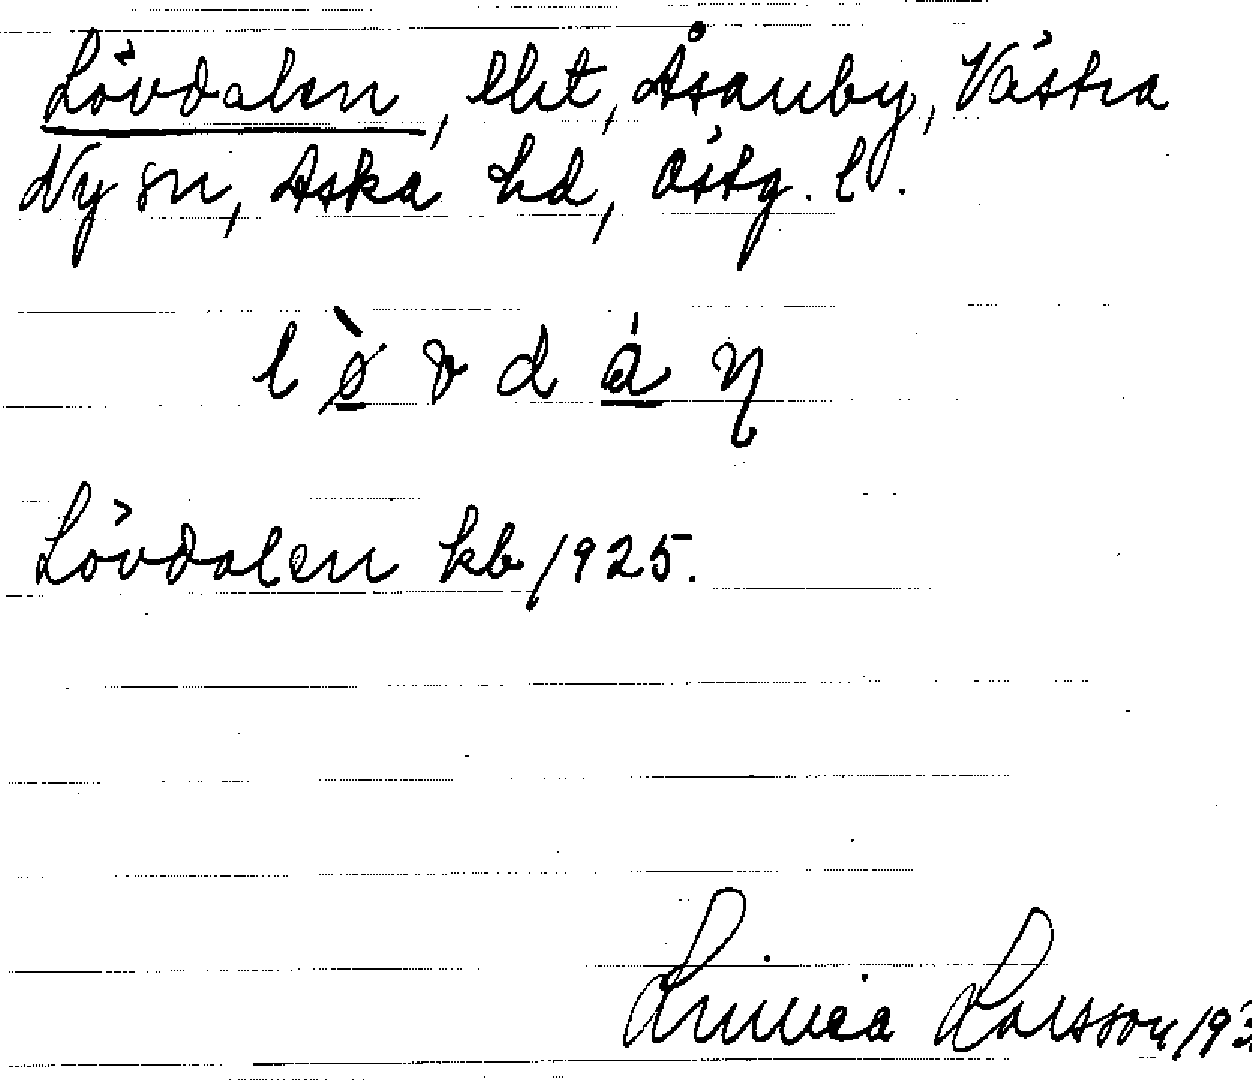 Lövdalen, lht, Åsauby, Västra
Ny sn, Aska hd, Östg. l.
Lövdalen kb 1925.
Linnea Larsson 193